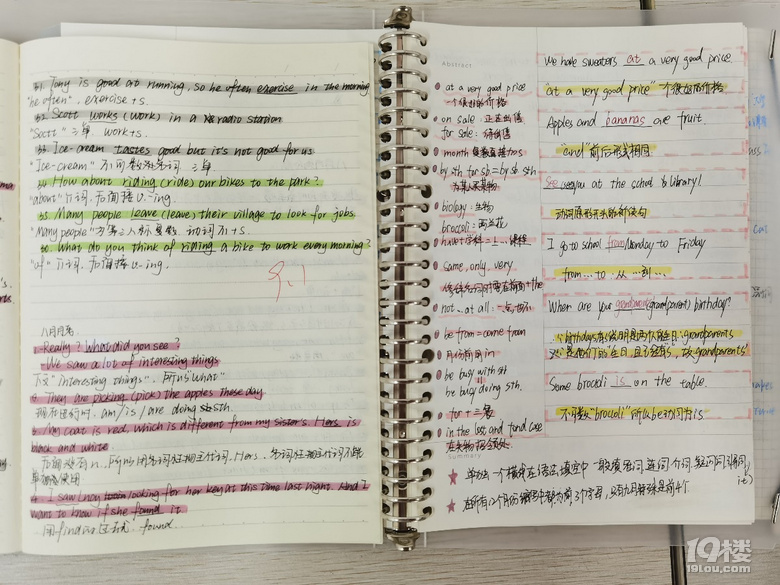 31. Tony is good at running, so he often exercise in the morning
"he often", exercise+s.
32. Scott works (work) in a radio station
"Scott" 三单 work+s.
33. Ice-cream tastes good but it's not good for us
"Ice-cream" 不可数名词 三单
34. How about riding (ride) our bikes to the park?
"about" 介词, 后面接v.-ing.
35. Many people leave (leave) their village to look for jobs
"Many people" 为第三人称复数 动词不+s.
36. What do you think of riding a bike to work every morning?
"of" 介词, 后面接v-ing.
八月月考
1. Really? What did you see?
We saw a lot of interesting things
下文"interesting things", 所以写"what"
2. They are picking (pick) the apples these day
现在进行时, am/is/are doing sth.
3. My coat is red, which is different from my sister's. Hers is
black and white.
后面没有n., 所以用名词性物主代词, Hers,
单独使用
4. I saw Lucy looking for her key at this time last night. And I
want to know if she found it
用find的过去式 found.
Abstract
at a very good price
一个很好的价格
on sale: 正在出售
for sale: 待出售
month 复数直接+s
by sth for sb = by sb sth
为某人买某物
biology: 生物
broccoli: 西兰花
have+学科=上...课程
same, only, very
not...at all: 一点也不
be from = come from
月份前用in
be busy with sth
be busy doing sth.
for + 三餐
in the lost and found case
在失物招领处
Summary
We have sweaters at a very good price.
"at a very good price" 一个很好的价格
Apples and bananas are fruit.
"and" 前后形式相同
See you at the school library!
动词原形开头的祈使句
I go to school from Monday to Friday
from...to: 从...到...
When are your grandparents' (grandparent) birthday?
Some broccoli is on the table.
不可数"broccoli" 所以be动词用is